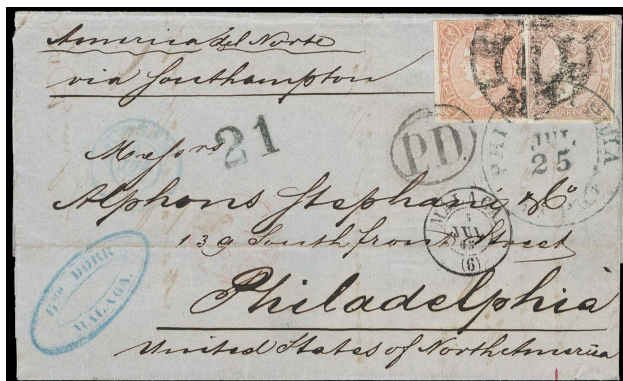 America del Norte
via Southampton
21
P.D.
JUL
25
Messrs
Alphons Stephani & Co
139 South front Street
MALAGA
JUL
65
(6)
DORR
MALAGA.
Philadelphia
United States of North America